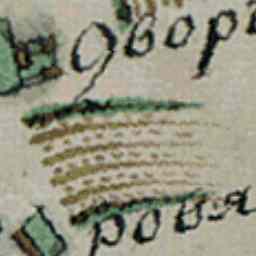 Дворъ
ровя